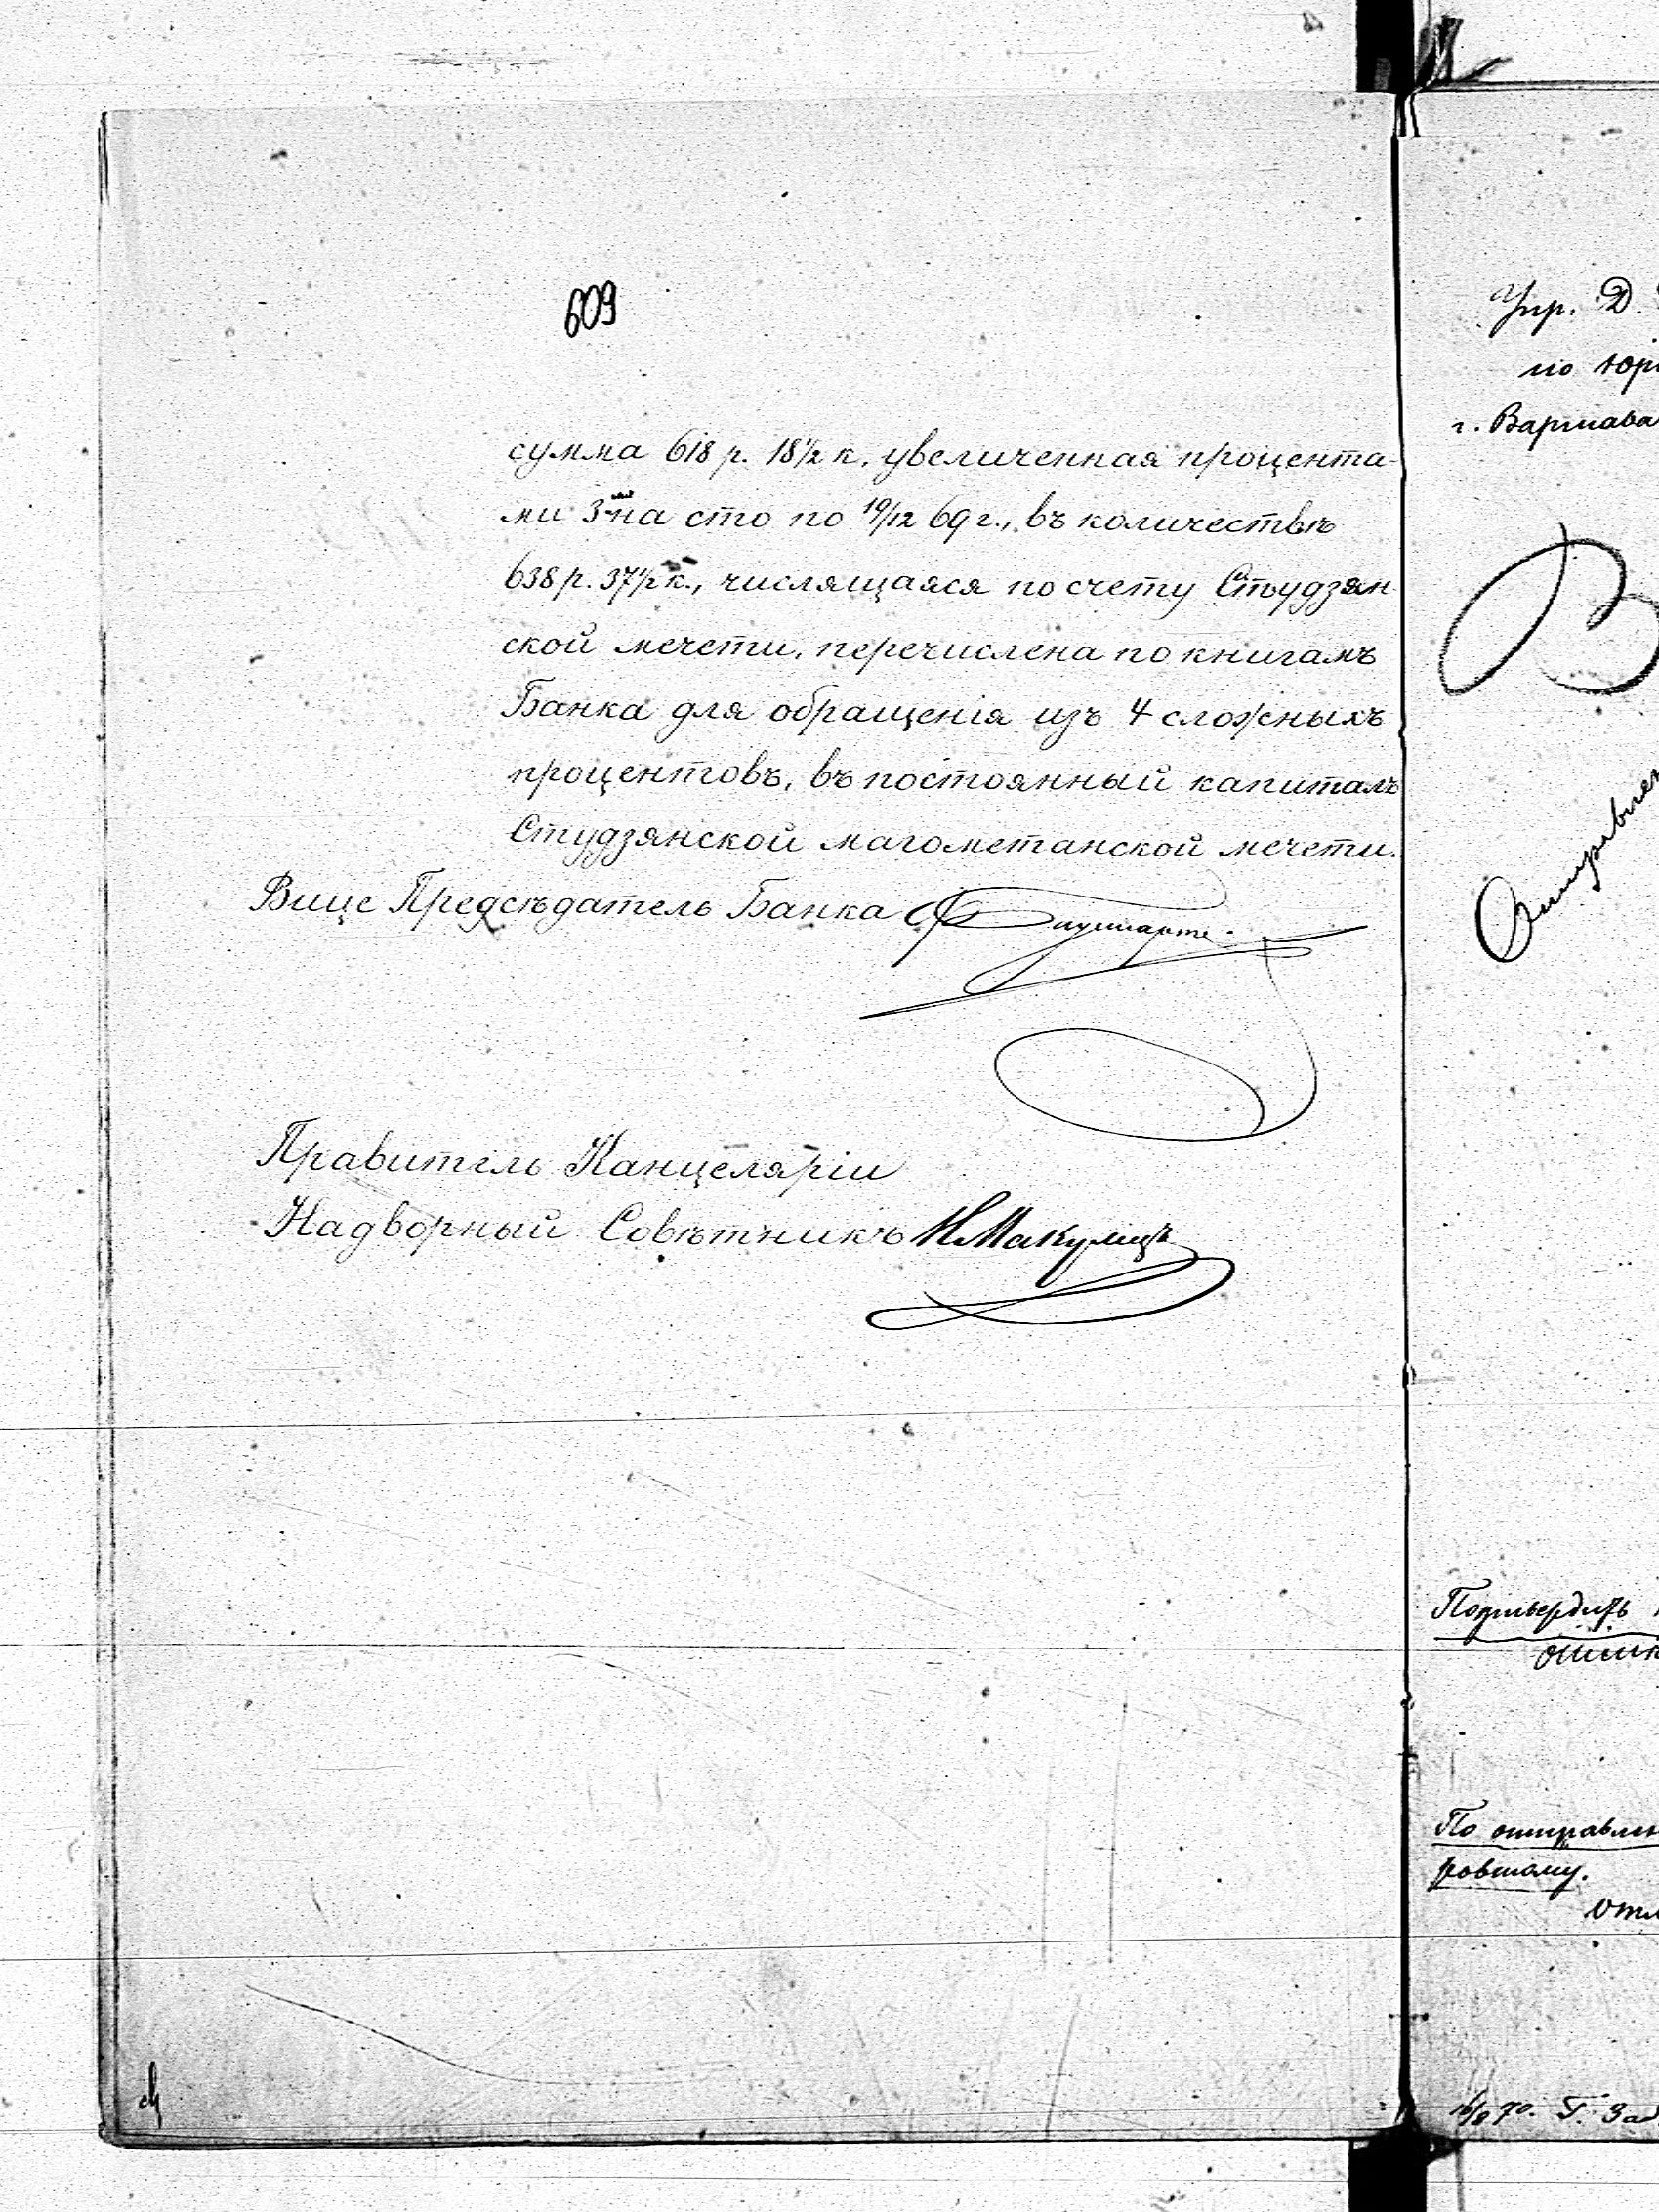 609
сумма 618 р. 18½ к, увеличенная процента-
ми 3 на сто по 19/12 69 г., въ количествѣ
638 р. 37½ к., числящаяся по счету Студзян-
ской мечети, перечислена по книгамъ
Банка для обращенія изъ 4 сложныхъ
процентовъ, въ постоянный капиталъ
Студзянской магометанской мечети.
Вице Предсѣдатель Банка
Правитель Канцеляріи
Надворный Совѣтникъ
Упр. Д.
по
г. Варшава
Подтвердить
По отправлен
ровшему.
16/8 70. Г.